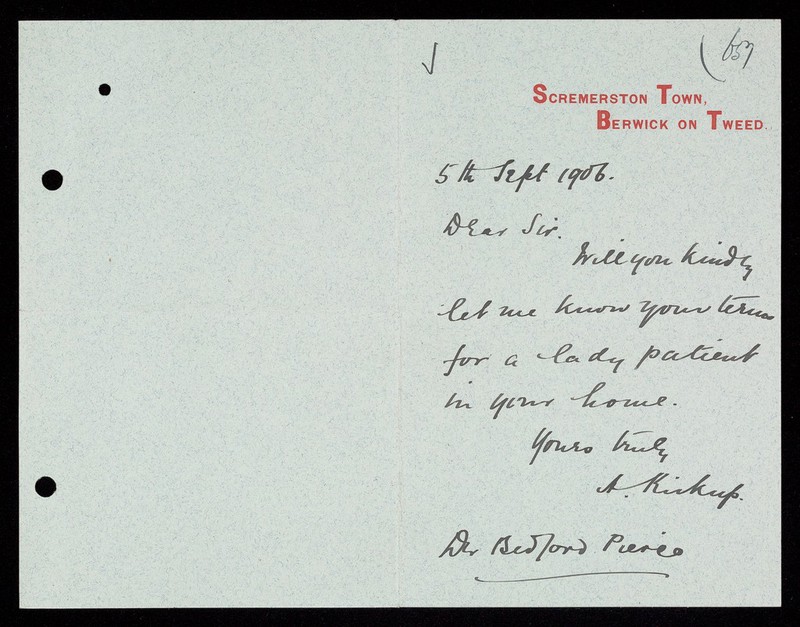 (657
SCREMERSTON TOWN,
BERWICK ON TWEED.
5th Sept 1906.
Dear Sir.
Will you kindly
let me know your terms
for a lady patient
in your home.
Yours truly
A. Kirkup.
Dr Bedford Pierce